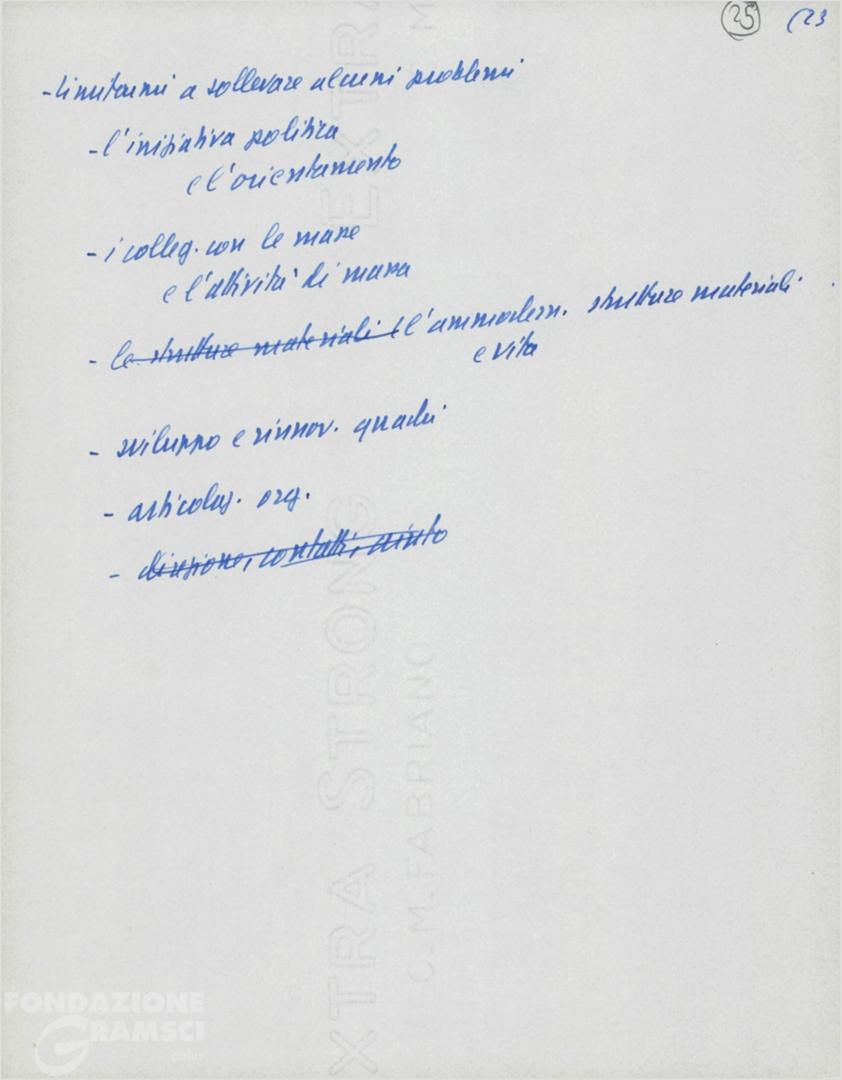 25 (23
- limitarmi a sollevare alcuni problemi
- l'iniziativa politica
e l'orientamento
- i colleg. con le masse
e l'attività di massa
- le strutture materiali (l'ammodern. strutture materiali.
e vita
- sviluppo e rinnov. quadri
- articolaz. org.
- direzione, contatti, aiuto
EXTRA STRONG EXTRA
C. M. FABRIANO M
FONDAZIONE
GRAMSCI
onlus